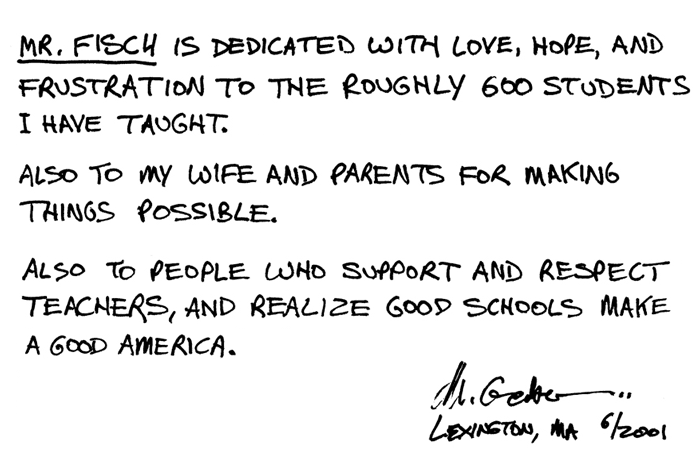 MR. FISCH IS DEDICATED WITH LOVE, HOPE, AND
FRUSTRATION TO THE ROUGHLY 600 STUDENTS
I HAVE TAUGHT.
ALSO TO MY WIFE AND PARENTS FOR MAKING
THINGS POSSIBLE.
ALSO TO PEOPLE WHO SUPPORT AND RESPECT
TEACHERS, AND REALIZE GOOD SCHOOLS MAKE
A GOOD AMERICA.
LEXINGTON, MA 6/2001